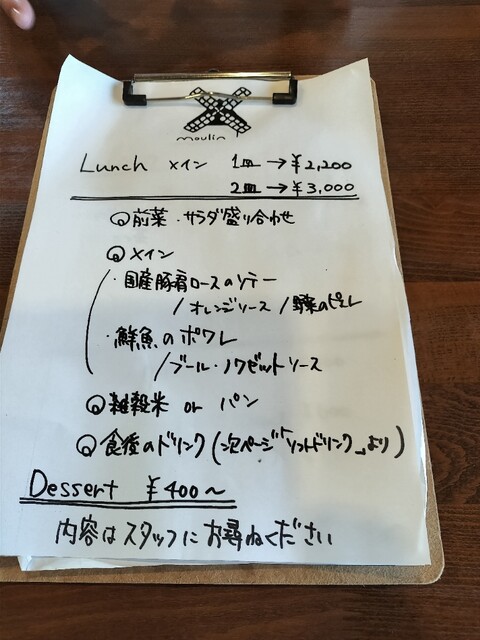 moulin
Lunch メイン 1皿→¥2,200
2皿→¥3,000
前菜・サラダ盛り合わせ
メイン
・国産豚肩ロースのソテー
/オレンジソース/野菜のピュレ
・鮮魚のポワレ
/ブール・ノワゼットソース
雑穀米 or パン
食後のドリンク(次ページ「ソフトドリンク」より)
Dessert ¥400〜
内容はスタッフにお尋ねください